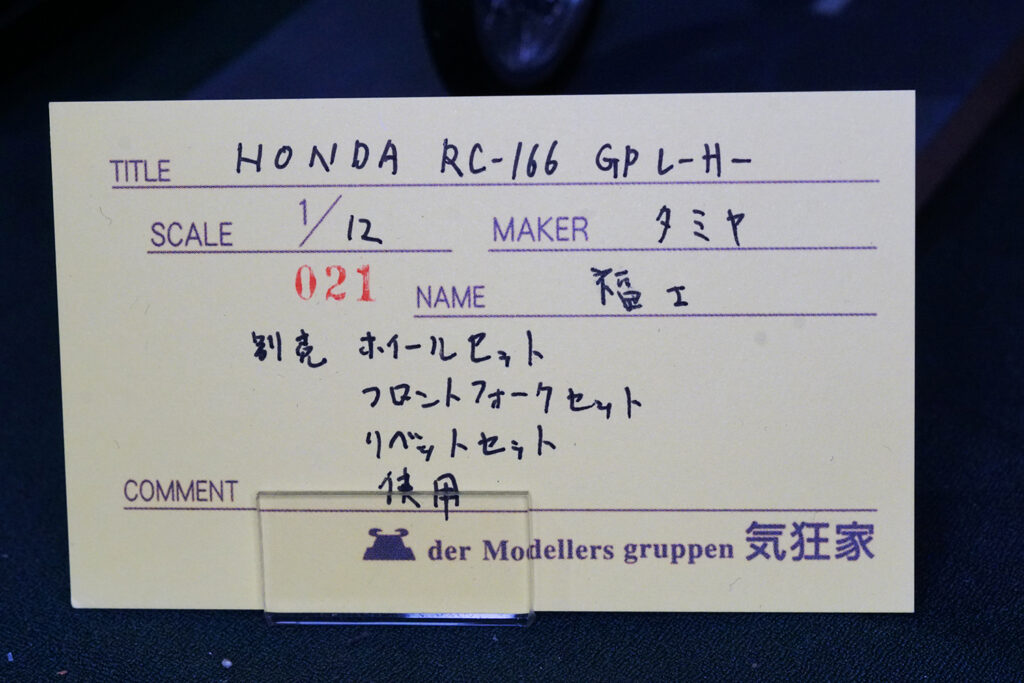 TITLE HONDA RC-166 GPレーサー
SCALE 1/12 MAKER タミヤ
021 NAME 福江
別売 ホイールセット
フロントフォークセット
リベットセット
COMMENT 使用
der Modellers gruppen 気狂家